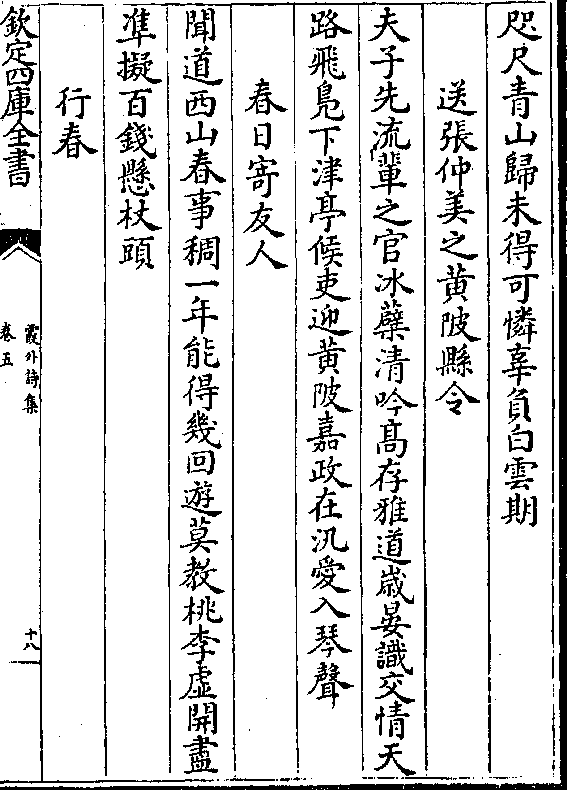 咫尺青山歸未得可憐辜負白雲期
送張仲美之黄陂縣令
夫子先流輩之官冰蘖清吟髙存雅道歳晏識交情天
路飛鳬下津亭候吏迎黄陂嘉政在汎愛入琴聲
春日寄友人
聞道西山春事稠一年能得幾回遊莫教桃李虚開盡
凖擬百錢懸杖頭
行春
欽定四庫全書
霞外詩集
卷五
十八